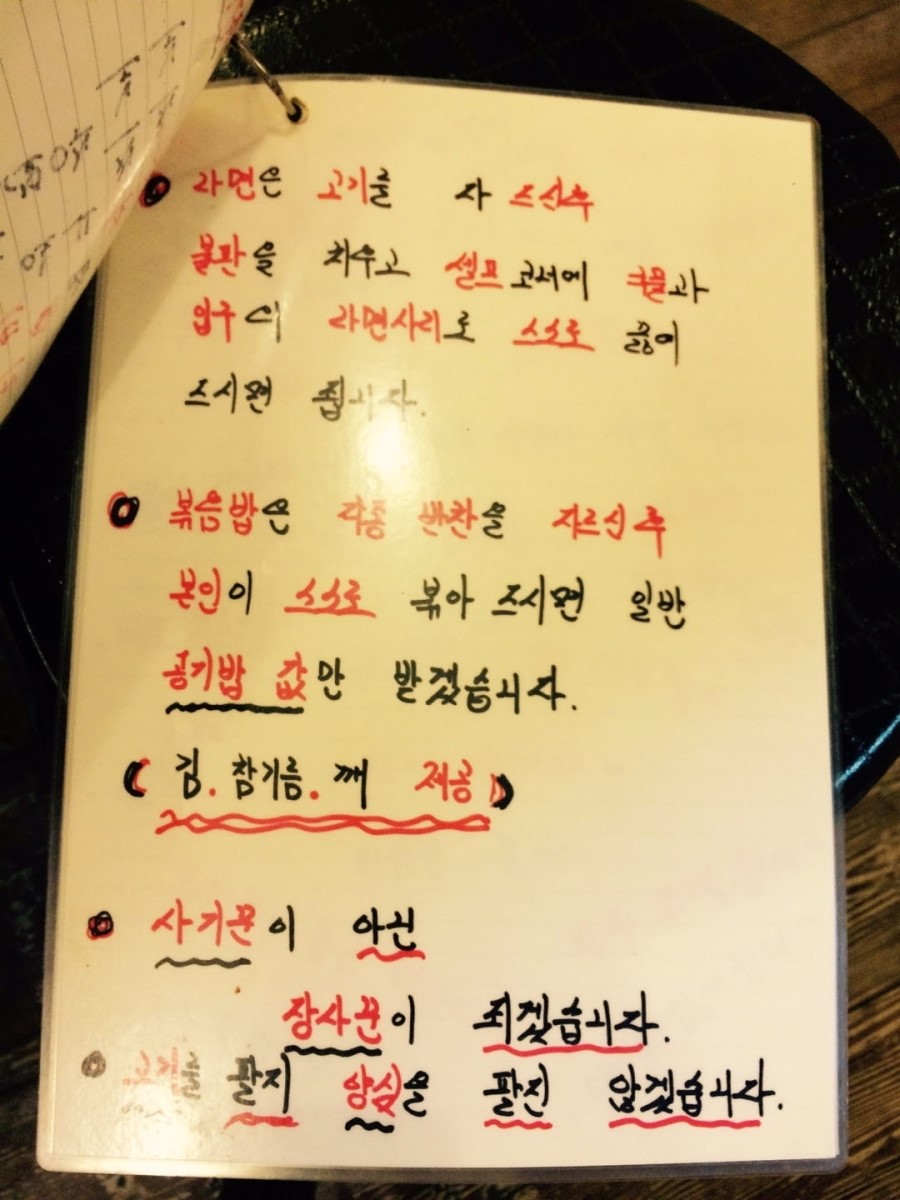 라면은 고기를 다 드신후
불판을 치우고 셀프코너에 국물과
입구에 라면사리로 스스로 끓여
드시면 됩니다.
볶음밥은 각종 반찬을 자르신 후
본인이 스스로 볶아 드시면 일반
공기밥 값만 받겠습니다.
(김. 참기름. 깨 제공)
사기꾼이 아닌
장사꾼이 되겠습니다.
고기를 팔지 양심을 팔진 않겠습니다.